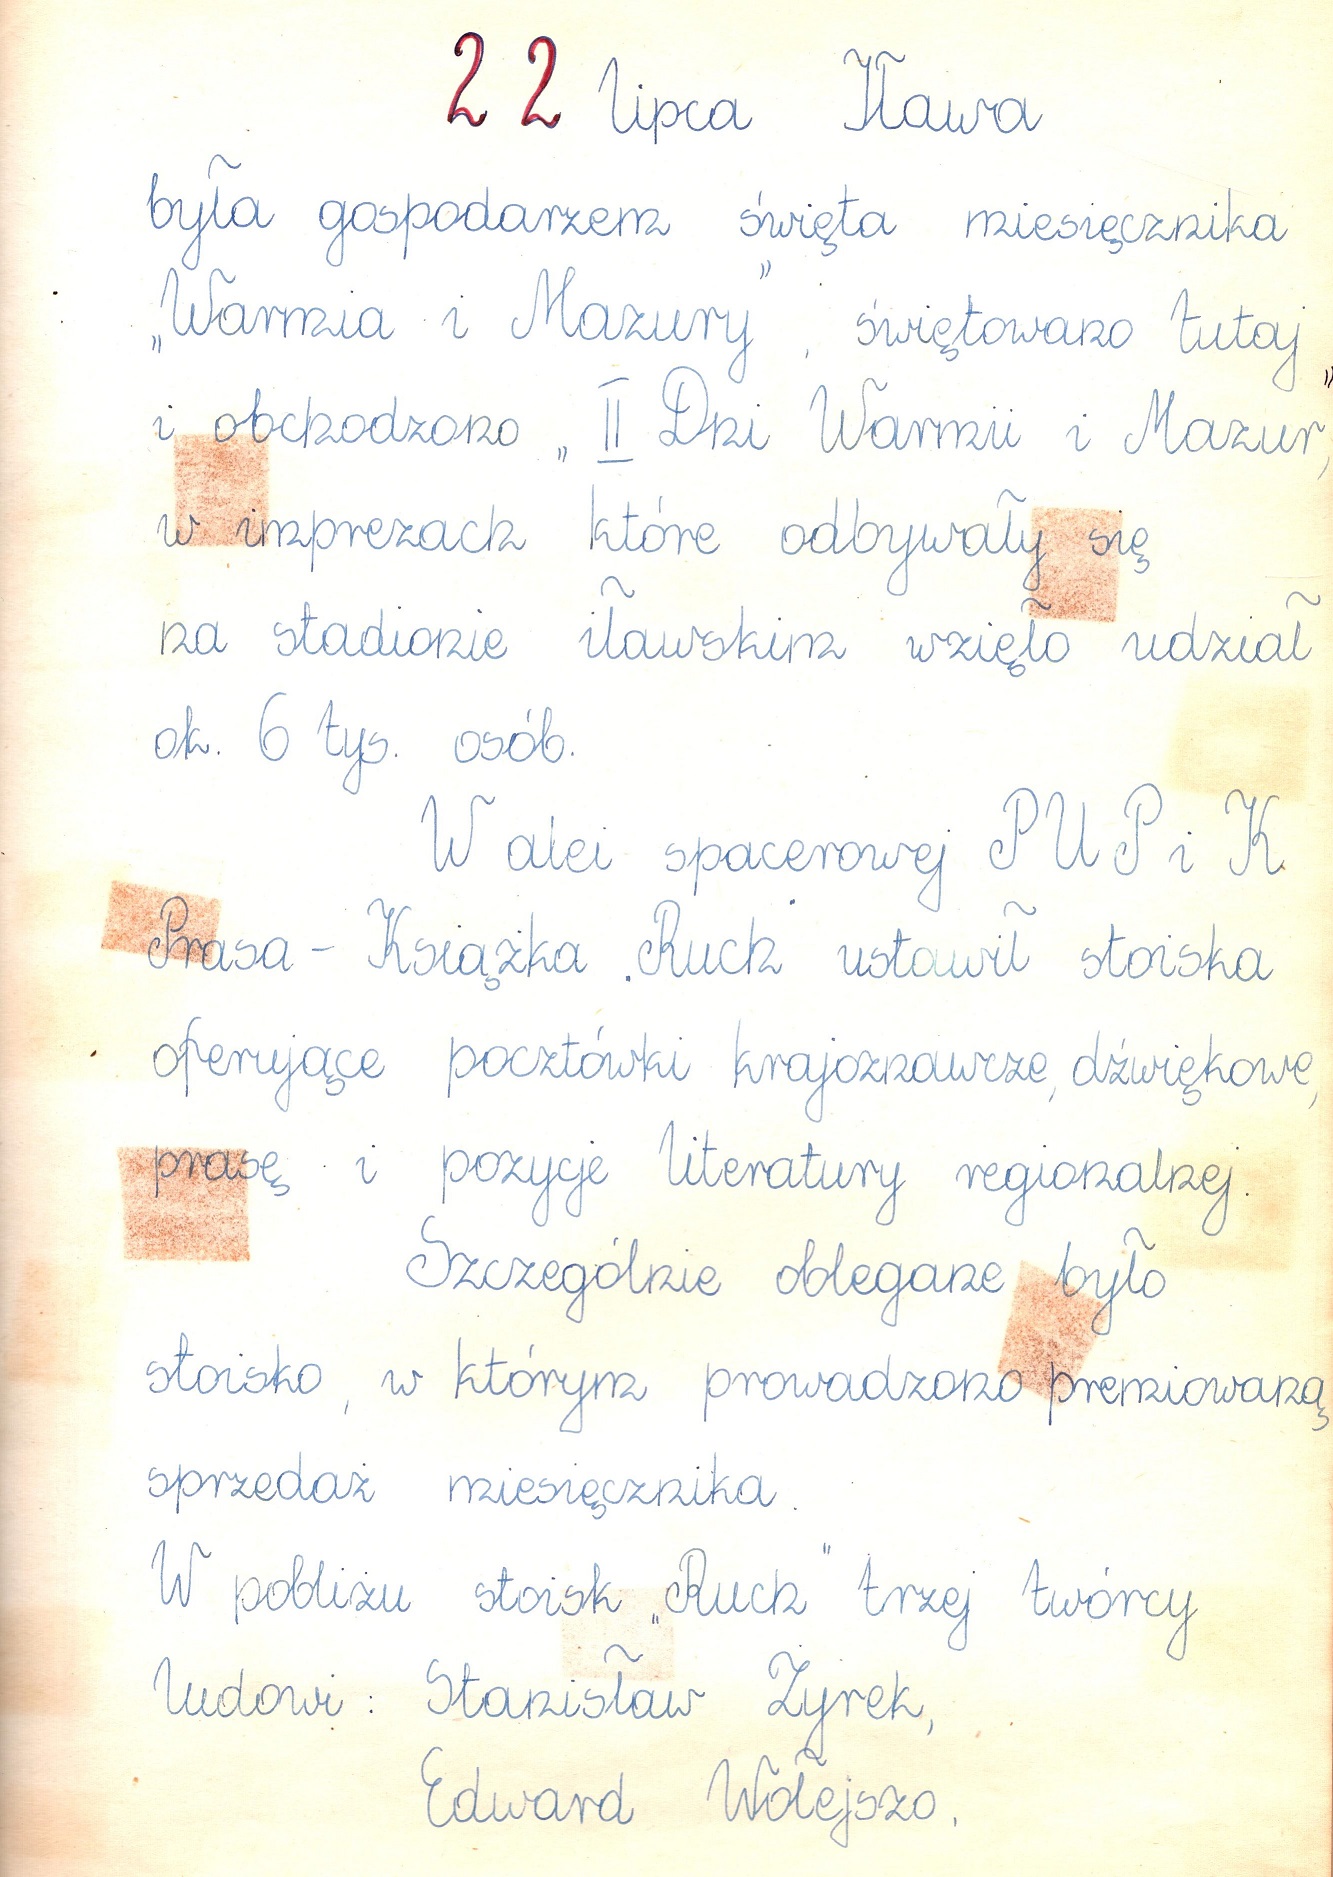 22 lipca Iława
była gospodarzem święta miesięcznika
„Warmia i Mazury”, świętowano tutaj
i obchodzono „II Dni Warmii i Mazur”,
w imprezach które odbywały się
na stadionie iławskim wzięło udział
ok. 6 tys. osób.
W alei spacerowej PUPiK
Prasa - Książka .Ruch ustawił stoiska
oferujące pocztówki krajoznawcze, dźwiękowe,
prasę i pozycje literatury regionalnej.
Szczególnie oblegane było
stoisko, w którym prowadzono premiowaną
sprzedaż miesięcznika.
W pobliżu stoisk „Ruch” trzej twórcy
ludowi: Stanisław Żyrek,
Edward Wołejszo,